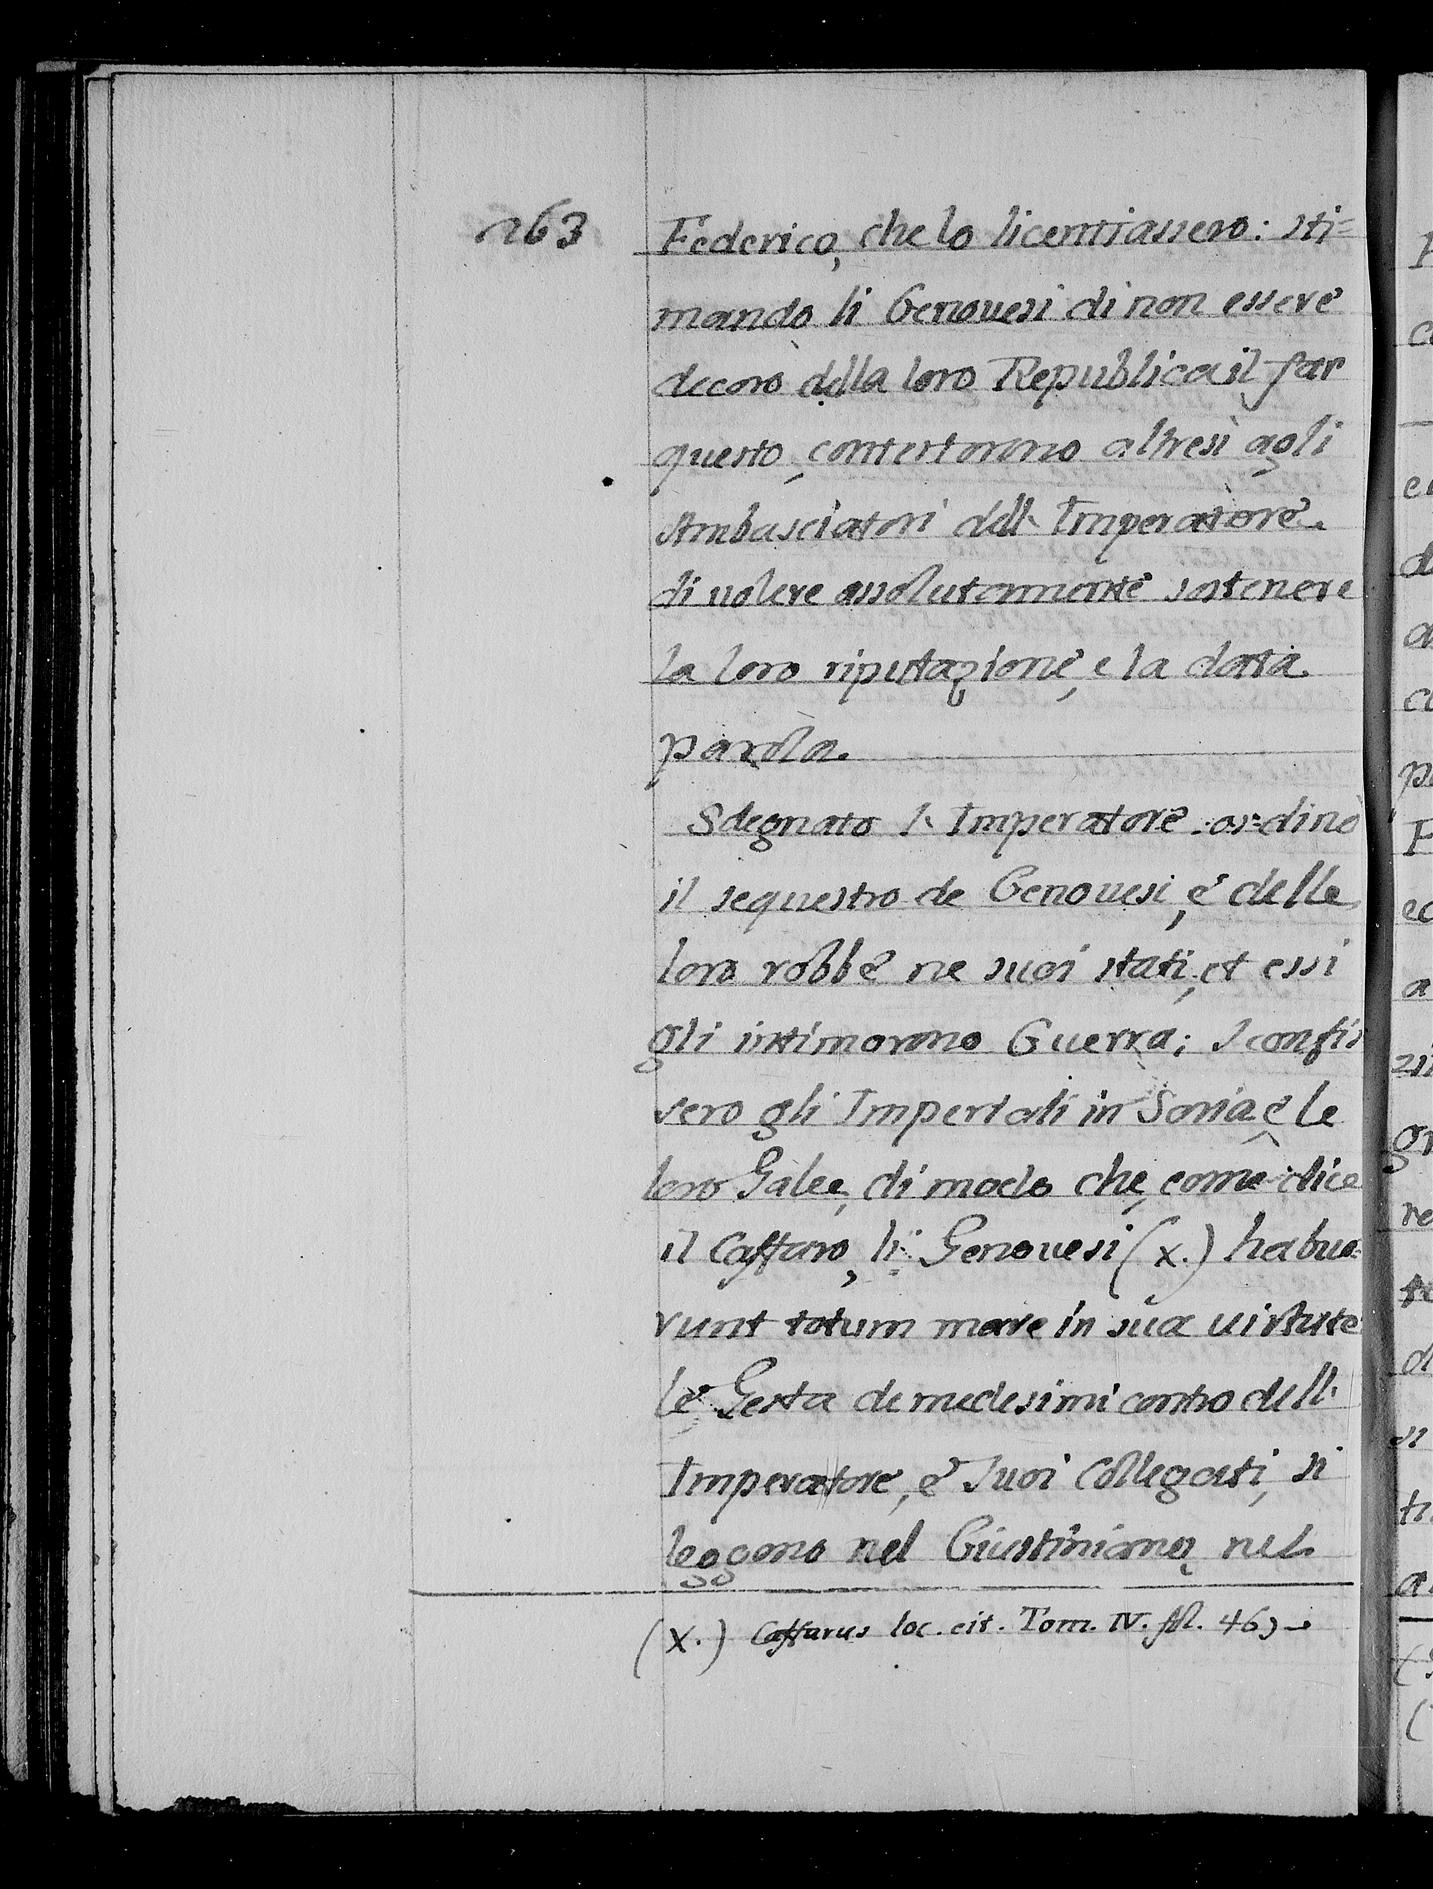 1263
Federico, che lo licentiassero: sti=
mando li Genouesi di non essere
decoro della loro Republica il far
questo, contestorono altresì agli
Ambasciatori dell' Imperatore.
di uolere assolutamente sostenere
la loro riputazione, e la data
parola.
Sdegnato l' Imperatore ordinò
il sequestro de Genouesi, e delle
loro robbe ne suoi stati, et essi
gli intimorono Guerra; sconfis
sero gli Imperiali in Soria e le
loro Galee, di modo che, come dice
il Caffaro, li Genouesi (x.) habue=
runt totum mare in sua uirtute
le Gesta de medesimi contro dell'
Imperatore, e suoi Collegati, si
leggono nel Giustiniano, nel
(x.) Caffarus loc. cit. Tom. IV. fol. 465